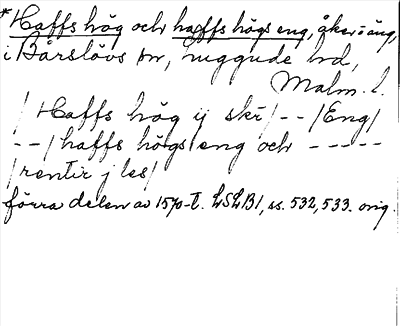 *Haffs hög och haffs högs eng, åker i äng,
i Bårslövs sn, luggude hd,
Malm. l.
/ Haffs hög ij skr/ - - /Eng/
- - / haffs högs eng och - - - - -
/rentir j les/
förra delen av 1570-t. LSLB1, ss. 532, 533. orig.